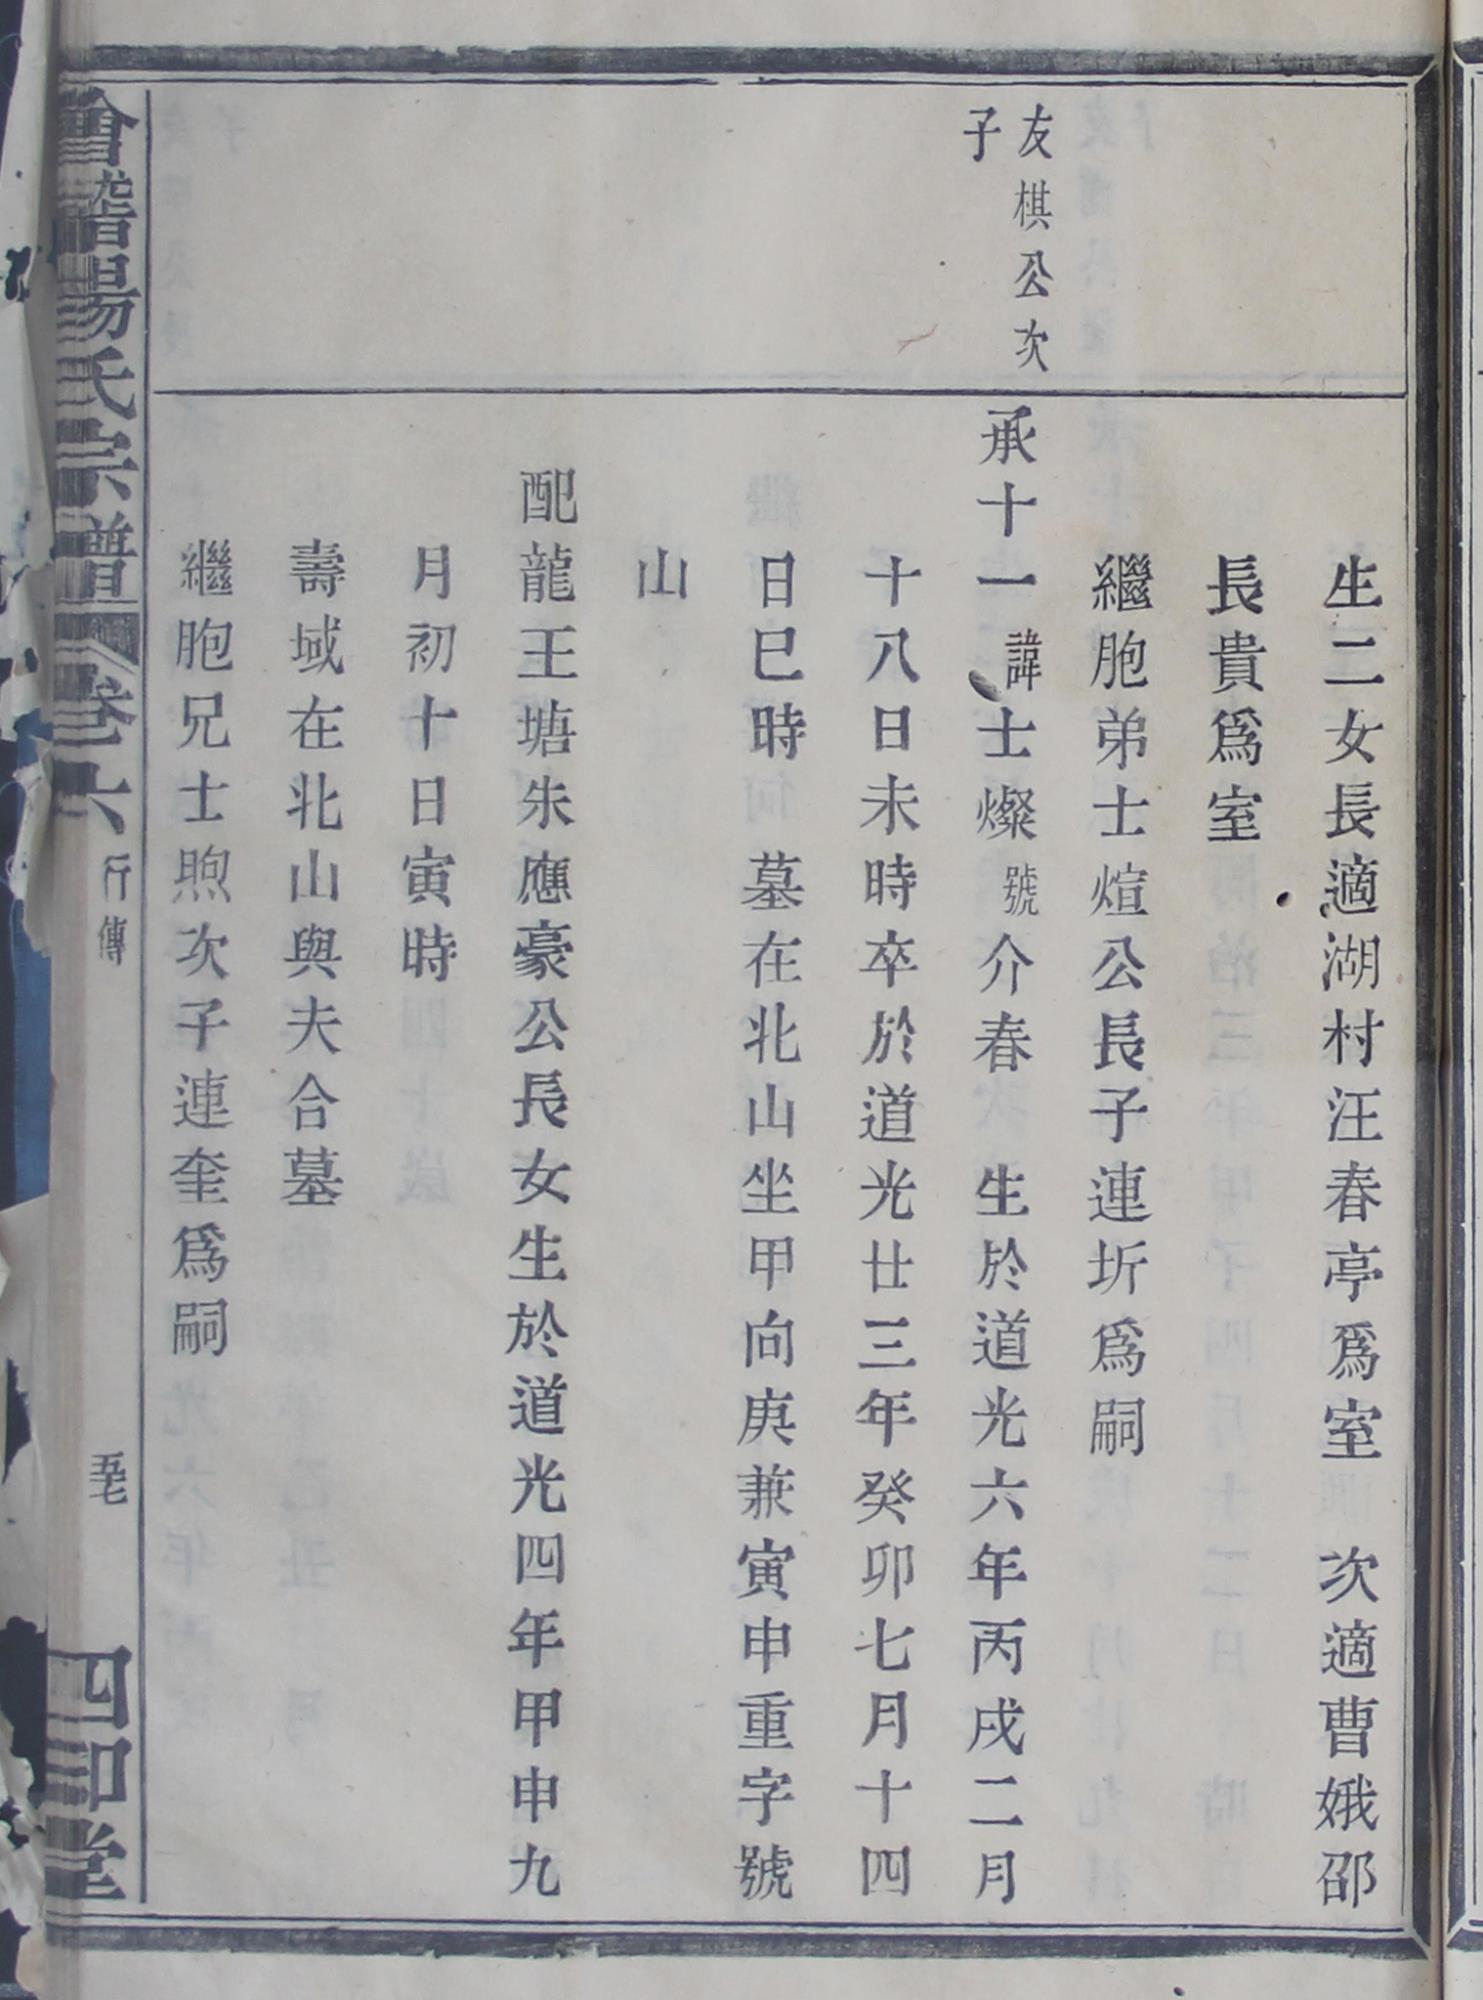 生二女長適湖村汪春亭爲室 次適曹娥邵
長貴爲室
繼胞弟士煊公長子連圻爲嗣
友棋公次
子
承十一諱士燦號介春 生於道光六年丙戌二月
十八日未時卒於道光廿三年癸卯七月十四
日巳時 墓在北山坐甲向庚兼寅申重字號
山
配龍王塘朱應豪公長女生於道光四年甲申九
月初十日寅時
壽域在北山與夫合墓
繼胞兄士煦次子連奎爲嗣
會稽楊氏宗譜 卷六 行傳 五七 四印堂